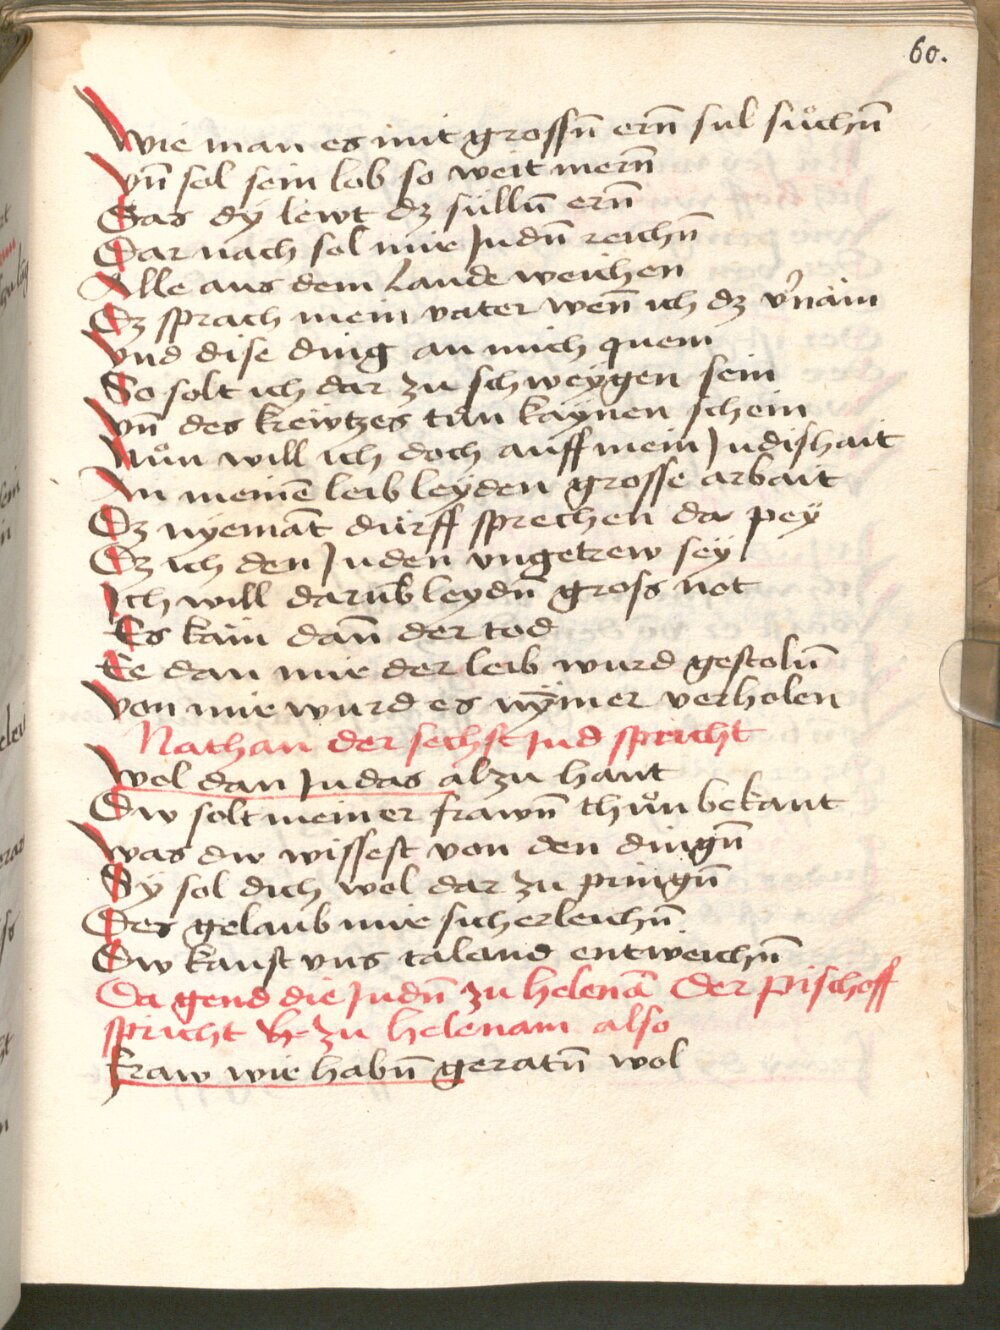 60.
Wie man es mit grossn̄ ern̄ sul sůchn̄
Vn̄ sol sein lob so weit mern̄
Das dÿ lewt dz sulln̄ ern̄
Dar nach sol mir Judn̄ reichn̄
Alle aus dem Lande weichen
Dz sprach mein vater wen̄ ich dz v'näm
Vnd dise ding an mich quem
So solt ich dar zu schweÿgen sein
Vn̄ des krewtzes tůn kaÿnen schein
Nůn will ich doch auff mein Judishait
An meinē leib leÿden grosse arbait
Dz nÿemāt dürff sprechen da peÿ
Dz ich den Juden vngetrew seÿ
Ich will darūb leydn̄ gross not
Es käm dan̄ der tod
Ee dan mir der leib wurd gestoln̄
Von mir wurd es nȳmer verholen
Nathan der sechst Jud spricht
Wol dan Judas alzu hant
Dw solt meiner frawn̄ thůn bekant
Was dw wissest von den dingn̄
Sÿ sol dich wol dar zu pringn̄
Des gelaub mir sicherleichn̄
Dw kanst vns taland entweichn̄
Da gend die Judn̄ zu helenā Der pischoff
spricht zu helenam also
Fraw wir habn̄ geratn̄ wol